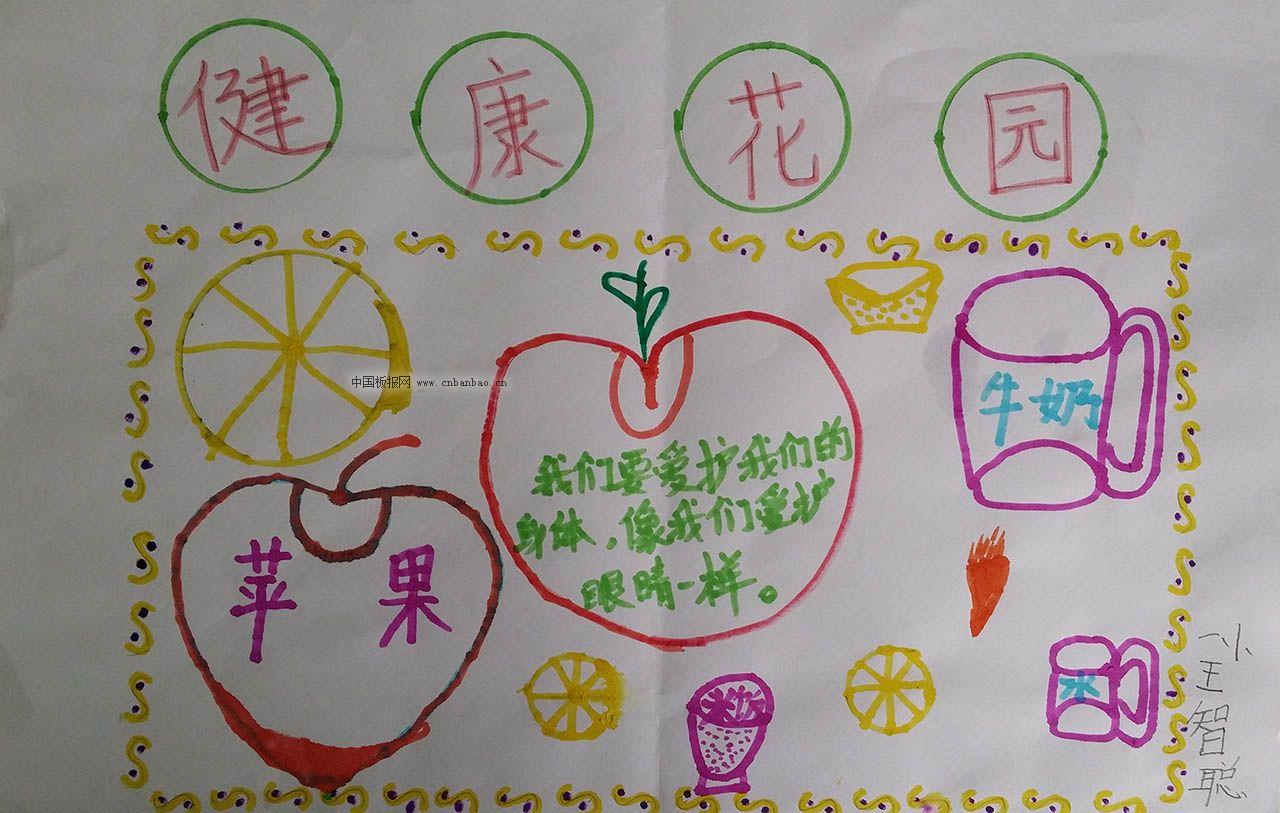 健康花园
中国板报网 www.cnbanbao.cn
牛奶
我们要爱护我们的
身体,像我们爱护
眼睛一样。
苹果
米饭
水
一小
王智聪